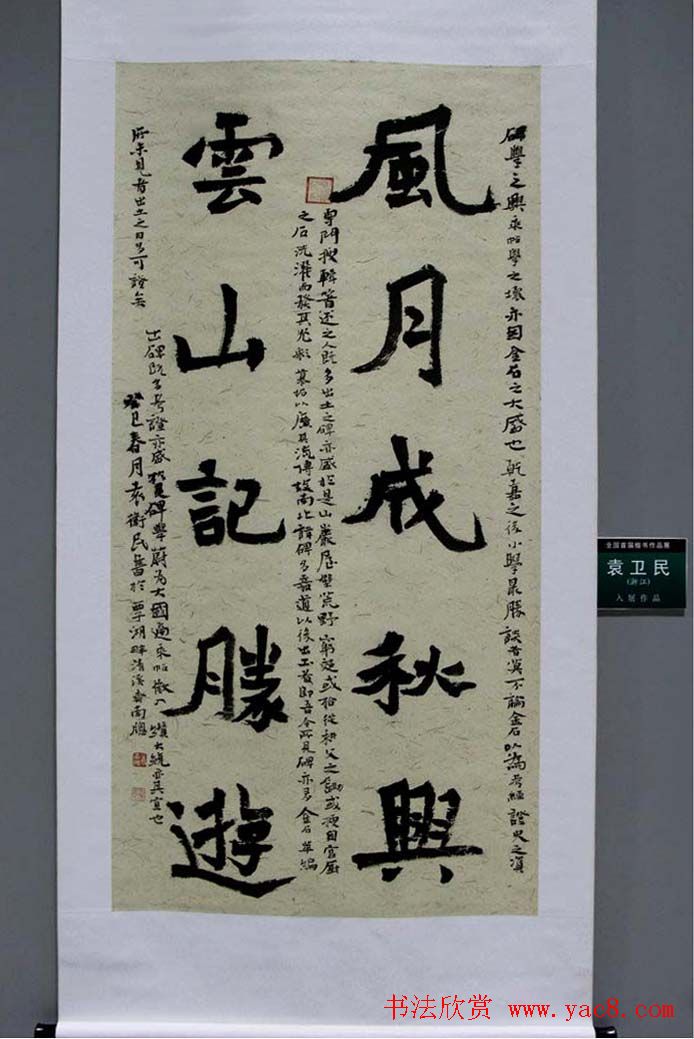 碑學之興乘帖學之壞亦因金石之大盛也乾嘉之後小學最勝談者莫不論金石以為考經證史之資
風月成秋興
專門搜輯著述之人既多出土之碑亦盛於是山巖屋壁荒野窮從或拾從耕父之鋤或搜自官厨
之石洗濯而發其光彩摹拓以廣其流傳故南北諸碑多嘉道以後出土者即吾今所見碑亦多金石萃編
雲山記勝遊
所未見者出土之日多可證矣
出碑既多考證亦盛於是碑學蔚為大國適乘帖微入纘大統亦其宜也
癸巳春月袁衛民書於湖畔清溪齋南牕
全国首届楷书作品展
袁卫民
(浙江)
入展作品
书法欣赏 www.yac8.com